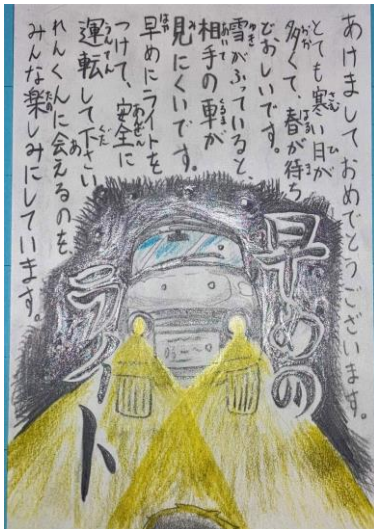 あけましておめでとうございます。
とても寒い日が
多くて、春が待ち
どおしいです。
雪がふっていると、
相手の車が
見にくいです。
早めにライトを
つけて、安全に
運転して下さい
れんくんに会えるのを
みんな楽しみにしています。
早めの
ライト